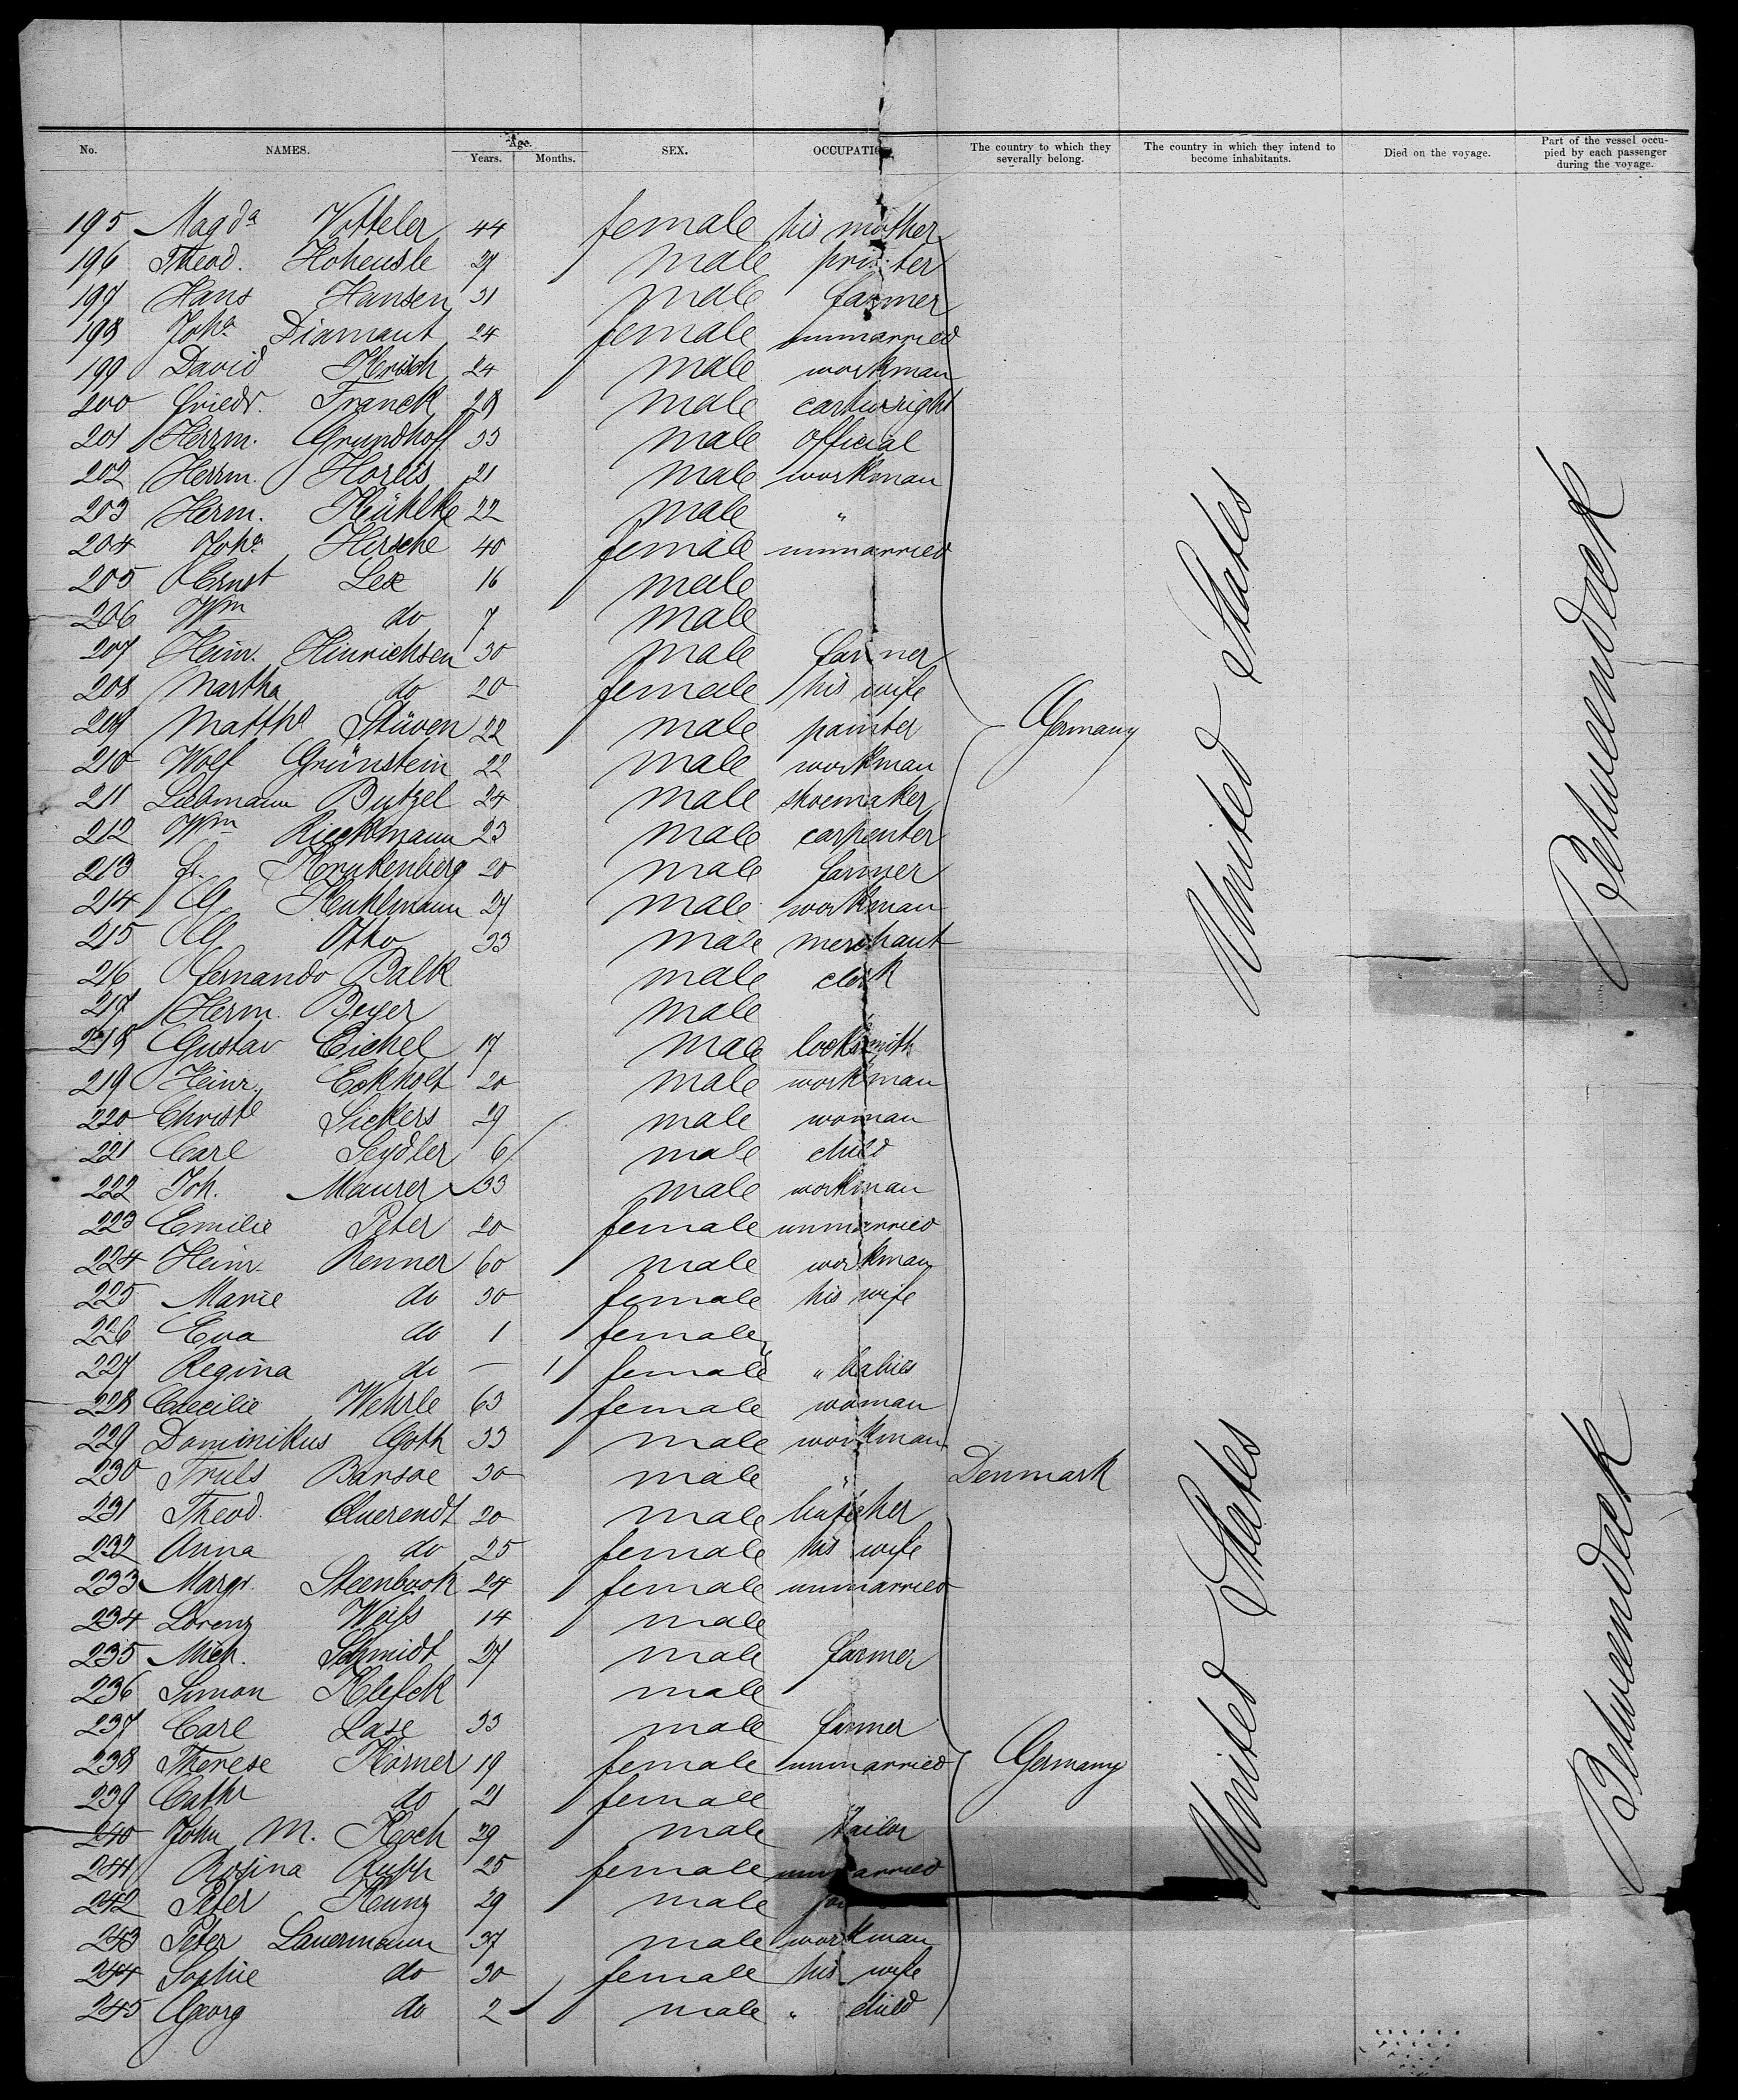 No. NAMES. Age. Years. Months. SEX. OCCUPATIO The country to which they severally belong. The country in which they intend to become inhabitants. Died on the voyage. Part of the vessel occupied by each passenger during the voyage.
195 Magda Votteler 44 female his mother
196 Theod. Hohensle 27 male printer
197 Hans Hansen 31 male farmer
198 Joha Diamant 24 female unmarried
199 David Hersch 24 male workman
200 Friedr. Franck 28 male cartwright
201 Herrm. Grundhoff 33 male official
202 Herrm. Horlis 21 male workman
203 Herm. Kühlke 22 male "
204 Joha Hirsche 40 female unmarried
205 Ernst Lex 16 male
206 Wm do 7 male
207 Heinr. Hinrichsen 30 male farmer
208 Martha do 20 female his wife
209 Matths Stüven 22 male painter Germany
210 Wolf Grünstein 22 male workman
211 Liebmann Butzel 24 male shoemaker
212 Wm Rieckmann 23 male carpenter
213 Fr. Krukenberg 20 male farmer
214 G Kuhlmann 27 male workman
215 G Otto 33 male merchant
216 Fernando Balk male clerk
217 Herm. Beyer male
218 Gustav Eichel 17 male locksmith
219 Heinr. Eckholt 20 male workman
220 Christe Sickers 29 male woman
221 Carl Seydler 6 male child
222 Joh. Maurer 33 male workman
223 Emilie Peter 20 female unmarried
224 Heinr. Renner 60 male workman
225 Marie do 30 female his wife
226 Eva do 1 female
227 Regina do — 1 female " babies
228 Caecilie Wehrle 63 female woman
229 Dominikus Goth 33 male workman
230 Truls Barsoe 30 male " Denmark
231 Theod. Querendt 20 male butcher
232 Anna do 25 female his wife
233 Margr. Steenbook 24 female unmarried
234 Lorenz Weiss 14 male
235 Mich. Schmidt 27 male farmer
236 Simon Klefek male
237 Carl Lase 33 male farmer
238 Therese Körner 19 female unmarried Germany
239 Cathr do 21 female
240 John M. Koch 29 male tailor
241 Rosina Rupp 25 female unmarried
242 Peter Kunz 29 male
243 Peter Lauermann 37 male workman
244 Sophie do 30 female his wife
245 Georg do 2 male " child
United States
Betweendeck
United States
Betweendeck